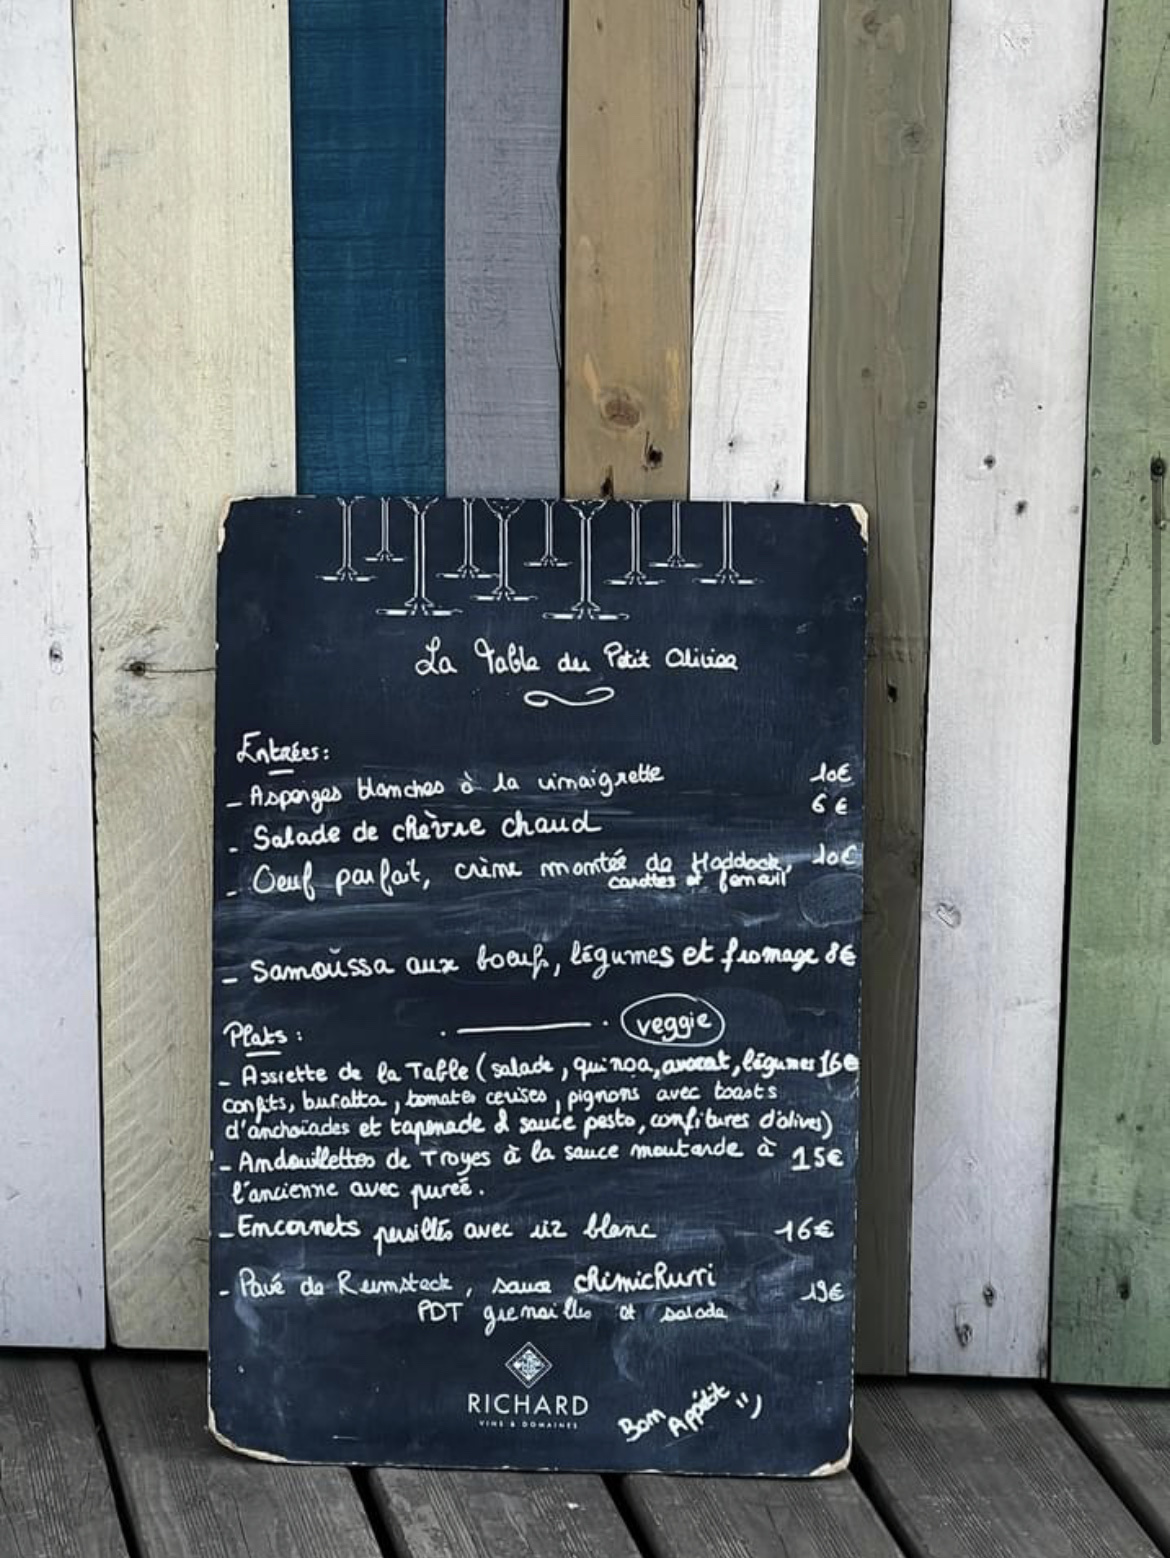 La Table du Petit Olivier
Entrées:
- Asperges blanches à la vinaigrette 10€
- Salade de chèvre chaud 6€
- Oeuf parfait, crème montée de Haddock, 10€
carottes et fenouil
- Samoussa aux boeuf, légumes et fromage 8€
Plats: veggie
- Assiette de la Table (salade, quinoa, avocat, légumes 16€
confits, buratta, tomates cerises, pignons avec toasts
d'anchoïades et tapenade & sauce pesto, confitures d'olives)
- Andouillettes de Troyes à la sauce moutarde à 15€
l'ancienne avec purée.
- Encornets persillés avec riz blanc 16€
- Pavé de Rumsteck, sauce chimichurri 19€
PDT grenailles et salade
RICHARD
VINS & DOMAINES
Bon Appétit :)